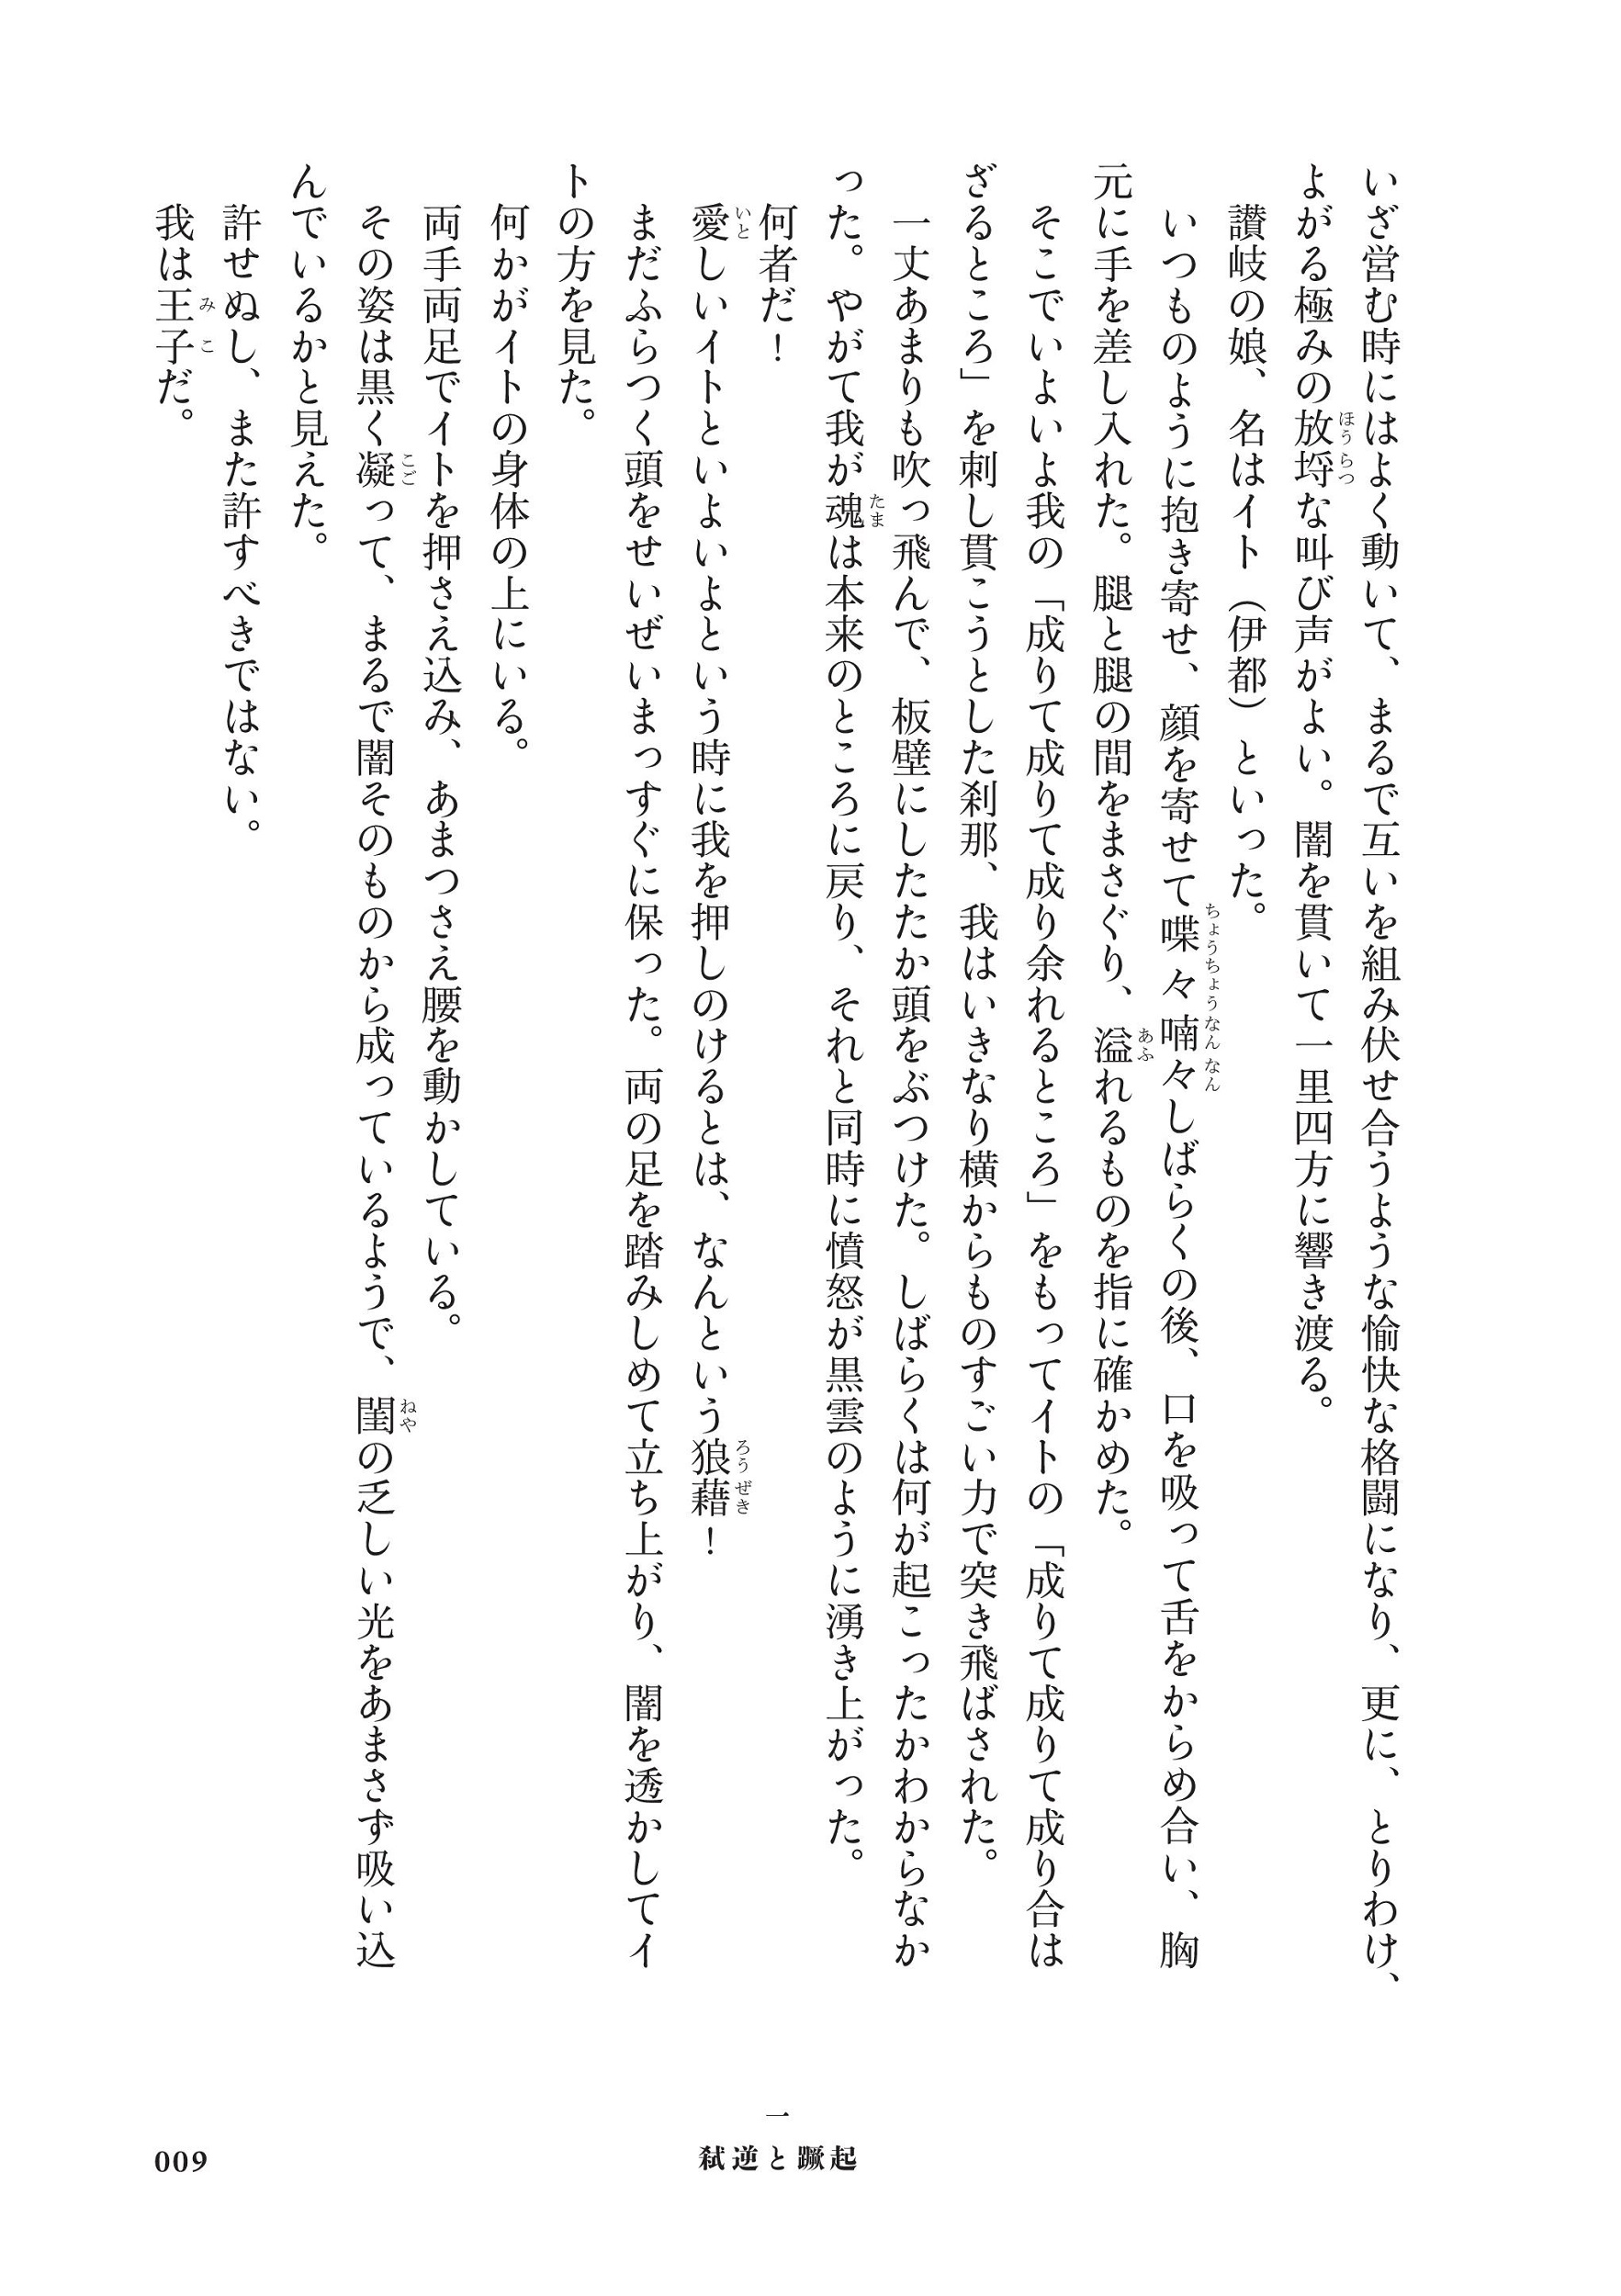 いざ営む時にはよく動いて、まるで互いを組み伏せ合うような愉快な格闘になり、更に、とりわけ、
よがる極みの放埒な叫び声がよい。闇を貫いて一里四方に響き渡る。
讃岐の娘、名はイト（伊都）といった。
いつものように抱き寄せ、顔を寄せて喋々喃々しばらくの後、口を吸って舌をからめ合い、胸
元に手を差し入れた。腿と腿の間をまさぐり、溢れるものを指に確かめた。
そこでいよいよ我の「成りて成りて成り余れるところ」をもってイトの「成りて成りて成り合は
ざるところ」を刺し貫こうとした刹那、我はいきなり横からものすごい力で突き飛ばされた。
一丈あまりも吹っ飛んで、板壁にしたたか頭をぶつけた。しばらくは何が起こったかわからなか
った。やがて我が魂は本来のところに戻り、それと同時に憤怒が黒雲のように湧き上がった。
何者だ！
愛しいイトといよいよという時に我を押しのけるとは、なんという狼藉！
まだふらつく頭をせいぜいまっすぐに保った。両の足を踏みしめて立ち上がり、闇を透かしてイ
トの方を見た。
何かがイトの身体の上にいる。
両手両足でイトを押さえ込み、あまつさえ腰を動かしている。
その姿は黒く凝って、まるで闇そのものから成っているようで、閨の乏しい光をあまさず吸い込
んでいるかと見えた。
許せぬし、また許すべきではない。
我は王子だ。
ほうらつ
ちょうちょうなんなん
あふ
たま
いと
ろうぜき
こご
ねや
みこ
一
弑逆と蹶起
009